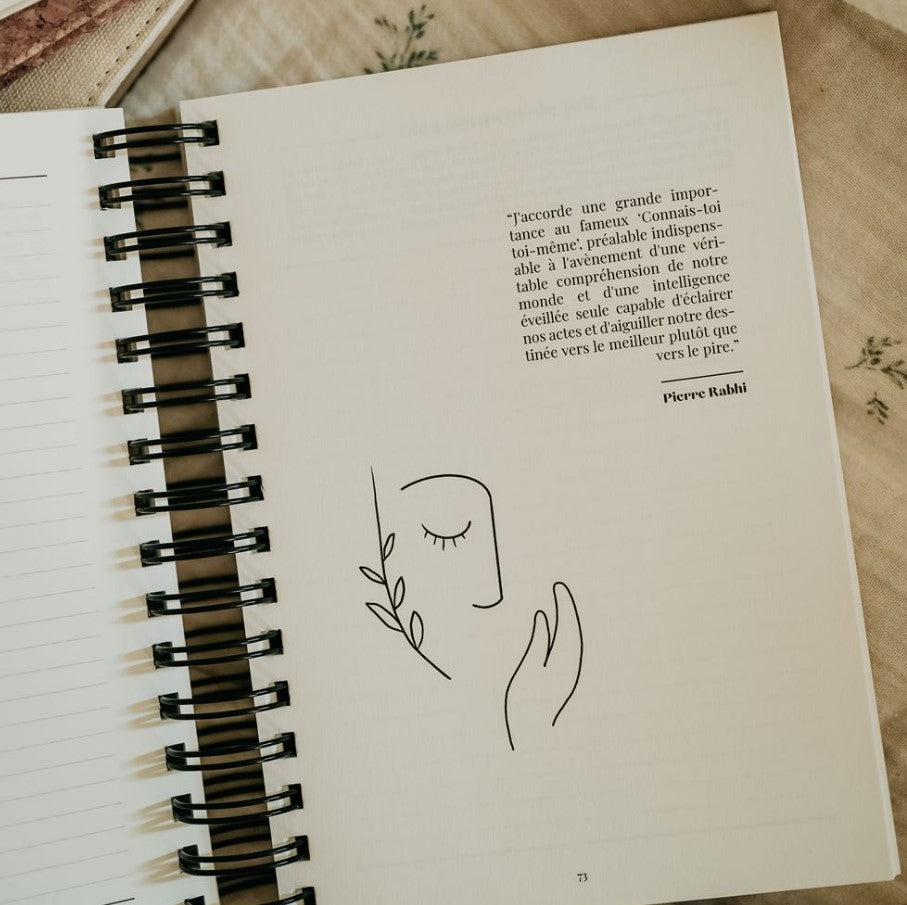 “J'accorde une grande impor-
tance au fameux ‘Connais-toi
toi-même’, préalable indispens-
able à l'avènement d'une véri-
table compréhension de notre
monde et d'une intelligence
éveillée seule capable d'éclairer
nos actes et d'aiguiller notre des-
tinée vers le meilleur plutôt que
vers le pire.”
Pierre Rabhi
73